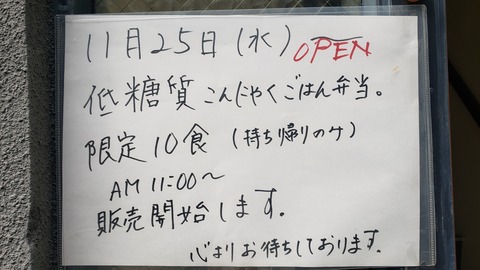 11月25日(水) OPEN
低糖質こんにゃくごはん弁当。
限定10食 (持ち帰りのみ)
AM 11:00～
販売開始します。
心よりお待ちしております。